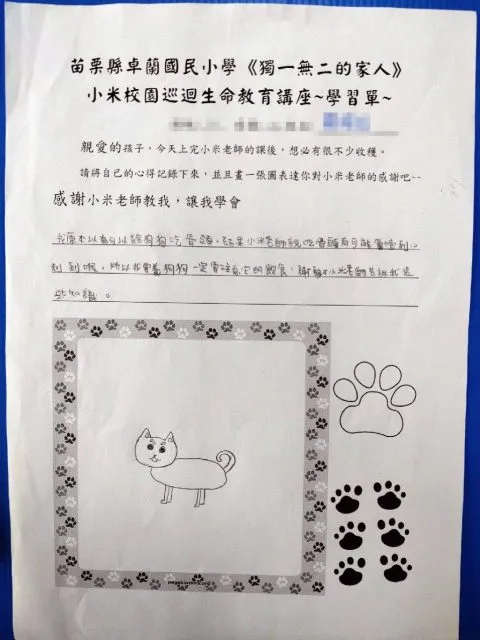 苗栗縣卓蘭國民小學《獨一無二的家人》
小米校園巡迴生命教育講座~學習單~
親愛的孩子，今天上完小米老師的課後，想必有很不少收穫。
請將自己的心得記錄下來，並且畫一張圖表達你對小米老師的感謝吧~~
感謝小米老師教我，讓我學會
我原本以為可以給狗狗吃骨頭，結果小米老師說吃骨頭有可能會噎到、
刺到喉，所以我養狗狗一定會注意它的飲食，謝謝小米老師告訴我這
些知識。